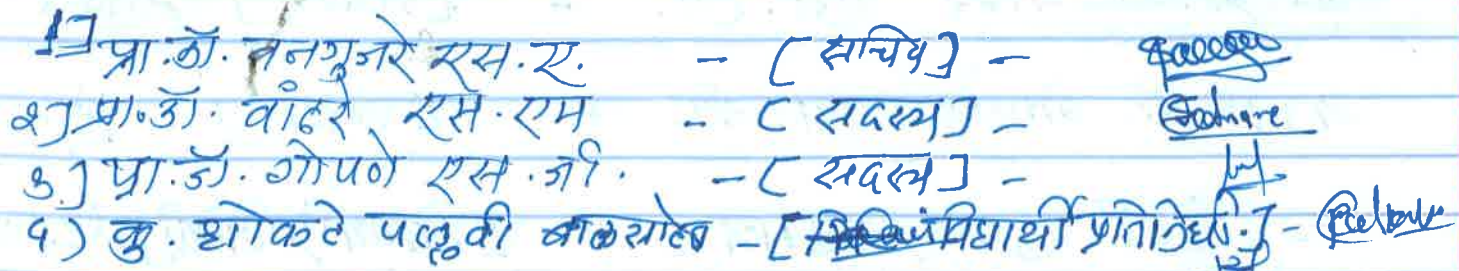 1] प्रा.डॉ. वनगुजरे एस.ए. - [सचिव] -
२] प्रा.डॉ. वांढरे एस.एम - [सदस्य] -
३.] प्रा.डॉ. गोपणे एस.जी. - [सदस्य] -
५) कु. धोकटे पल्लवी बाळासाहेब - [विद्यार्थी प्रतिनिधी] -